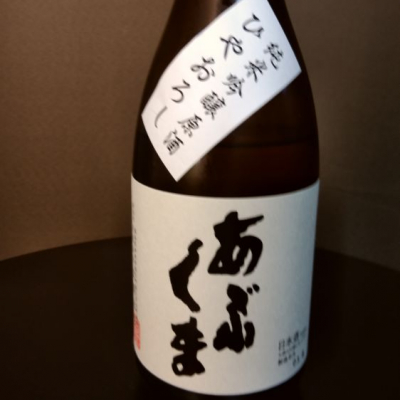 純米吟醸原酒
ひやおろし
あぶ
くま
日本酒